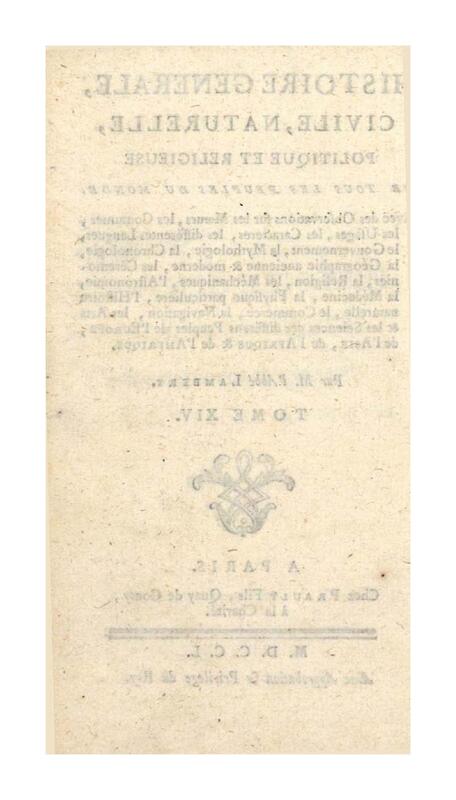 HISTOIRE GENERALE,
CIVILE, NATURELLE,
POLITIQUE ET RELIGIEUSE
DE TOUS LES PEUPLES DU MONDE,
Avec des Observations sur les Mœurs, les Coutumes,
les Usages, les Caracteres, les différentes Langues,
le Gouvernement, la Mythologie, la Chronologie,
la Géographie ancienne & moderne, les Cérémo-
nies, la Religion, les Méchaniques, l'Astronomie,
la Médecine, la Physique particuliere, l'Histoire
naturelle, le Commerce, la Navigation, les Arts
& les Sciences des différens Peuples de l'EUROPE,
de l'ASIE, de l'AFRIQUE & de l'AMERIQUE.
Par M. l'Abbé LAMBERT.
TOME XIV.
A PARIS.
Chez PRAULT Fils, Quay de Conty,
à la Charité.
M. D. C. C. L.
Avec Approbation & Privilege du Roy.